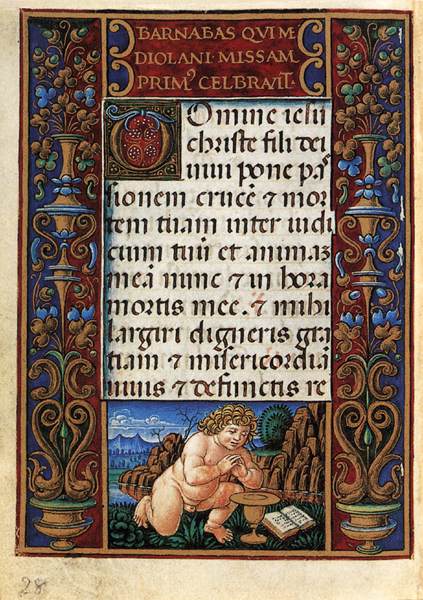 BARNABAS QVI ME
DIOLANI · MISSAM
PRIMꝰ CELBRAVIT·
Domine iesu
christe fili dei
uiui pone pas
sionem crucē ⁊ mor
tem tuam inter iudi
cium tuū et animaz
meā nunc ⁊ in hora
mortis mee. ⁊ mihi
largiri digneris gra
tiam ⁊ misericordiā
uiuis ⁊ defunctis re
28